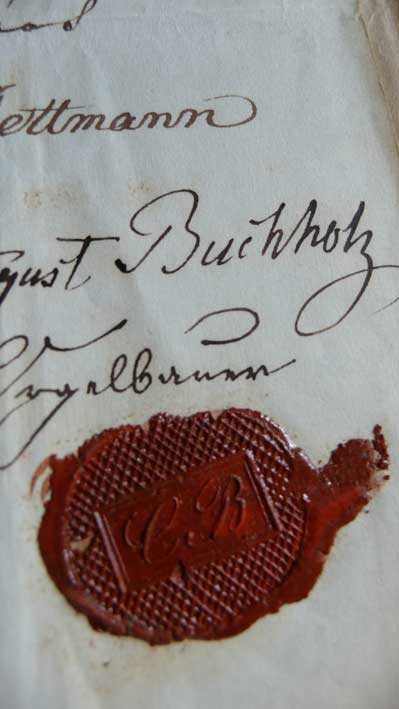 ettmann
gust Buchholz
Orgelbauer
CB